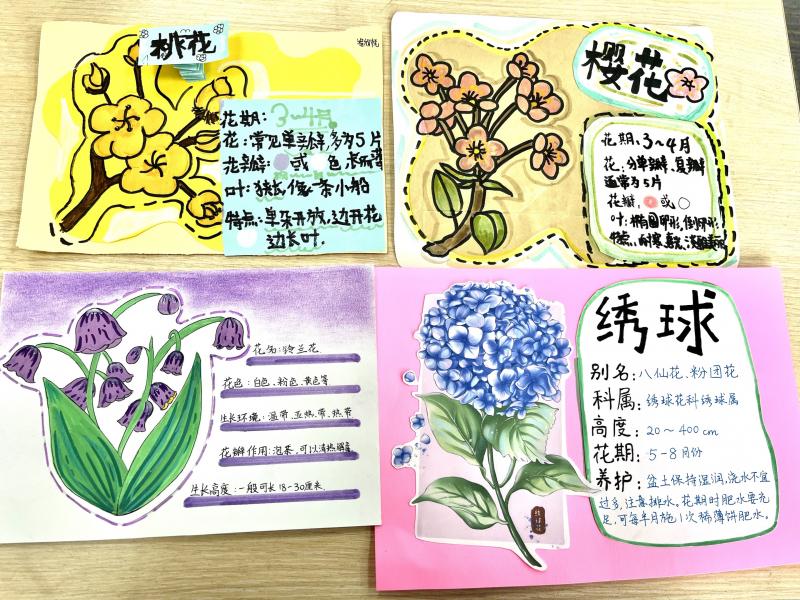 桃花
花期：3~4月
花：常见单瓣，多为5片
花瓣：或 色
叶：狭长，像一条小船
特点：单朵开放，边开花
边长叶.
樱花
花期，3~4月
花：分单瓣、复瓣
通常为5片
花瓣，或
叶：椭圆卵形，倒卵形
特点，耐寒
花名：铃兰花
花色：白色、粉色、黄色等
生长环境：温带、亚热带、热带
花瓣作用：泡茶，可以清热解毒
生长高度：一般可长18-30厘米.
绣球
别名：八仙花、粉团花
科属：绣球花科绣球属
高度：20～400cm
花期：5-8月份
养护：盆土保持湿润，浇水不宜
过多，注意排水。花期时肥水要充
足，可每半月施1次稀薄饼肥水。